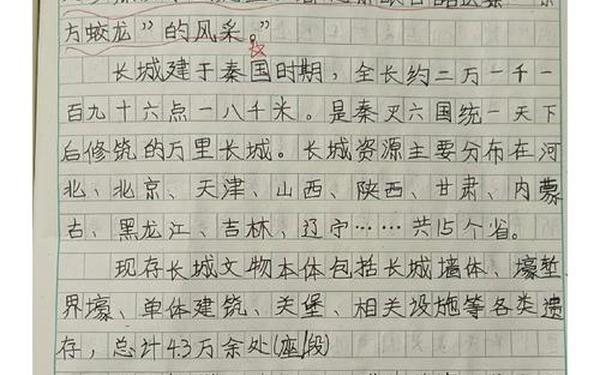 方蛟龙”的风采。”
长城建于秦国时期，全长约二万一千一
百九十六点一八千米。是秦灭六国统一天下
后修筑的万里长城。长城资源主要分布在河
北、北京、天津、山西、陕西、甘肃、内蒙
古、黑龙江、吉林、辽宁……共15个省。
现存长城文物本体包括长城墙体、壕堑
界壕、单体建筑、关堡、相关设施等各类遗
存，总计4.3万余处(座/段)